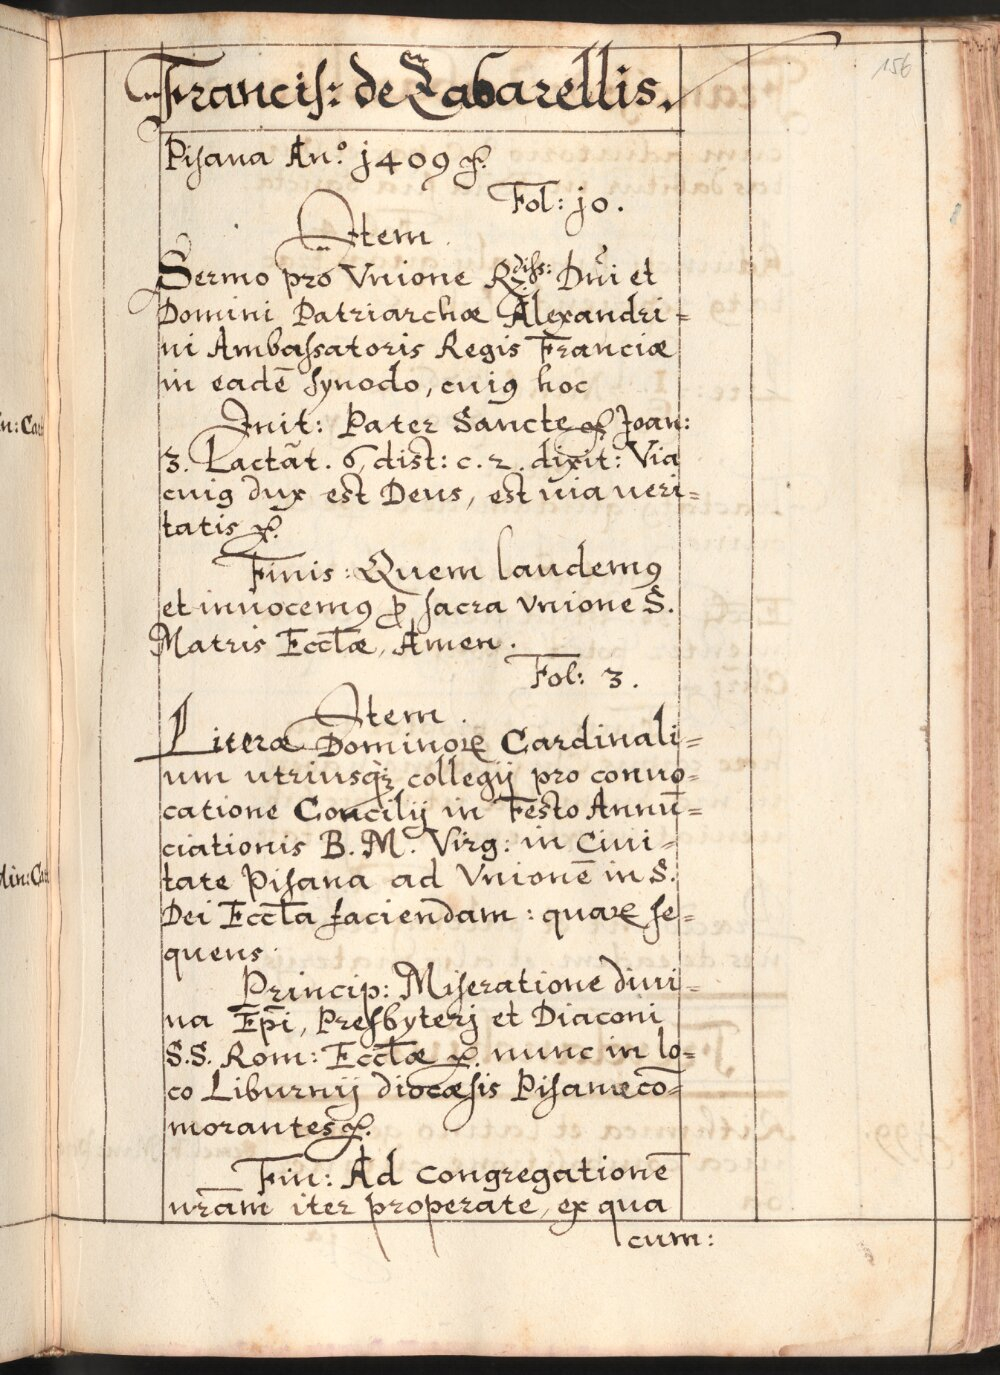 156
Francis: de Zabarellis.
Pisana Anº. j409 &.
Fol: jo.
Item
Sermo pro Vnione R.diss: Dn̄i et
Domini Patriarchæ Alexandri=
ni Ambassatoris Regis Franciæ
in eadē synodo, cuiꝰ hoc
Init: Pater Sancte & Joan:
3. Lactāt. 6, dist: c. 2. dixit: Via
cuiꝰ dux est Deus, est uia ueri=
tatis &.
Finis: Quem laudemꝰ
et inuocemꝰ ꝓ sacra vnione S.
Matris Eccl̄æ, Amen.
Fol: 3.
Item.
Literæ Dominoꝝ Cardinali=
um utriusqꝫ collegij pro conuo=
catione Concilij in Festo Annū=
ciationis B. M. Virg: in Ciui=
tate Pisana ad Vnionē in S.
Dei Eccl̄a faciendam: quaꝝ se=
quens
Princip: Miseratione diui=
na Ep̄i, Presbyterj et Diaconi
S.S. Rom: Eccl̄æ &. nunc in lo=
co Liburnij diocæsis Pisanæ cō=
morantes &.
Fin: Ad congregationē
nr̄am iter properate, ex qua
cum:
n: Ca
lin: Ca